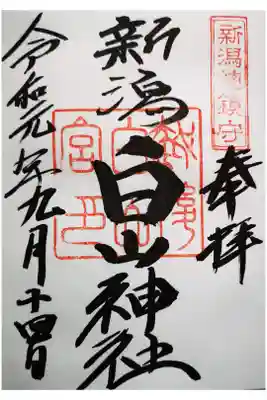 新潟総鎮守
奉拝
新潟
白山神社
令和元年九月十四日